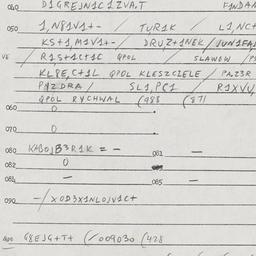 040 D1GREJN1C1ZVA,T F1NDAN
050 1,N81V1+- / TUR1K / L1,NC+
KS+1,M1V1+- / DRU,Z+1NEK / JUN1FA
VE R1S+1C1C QPOL SLAWOW / PS
KL8E,C+1L QPOL KLESZCZELE / PAZ3R
PYZDRA / SL1,PC1 R1XVU
QPOL RYCHWAL (988 (871
060 0
070 0
080 = - 081 -
082 0
084 - 085 -
090 -/X0D3X1NLOJV1C+
G8EJG+T+ (/009030 (428